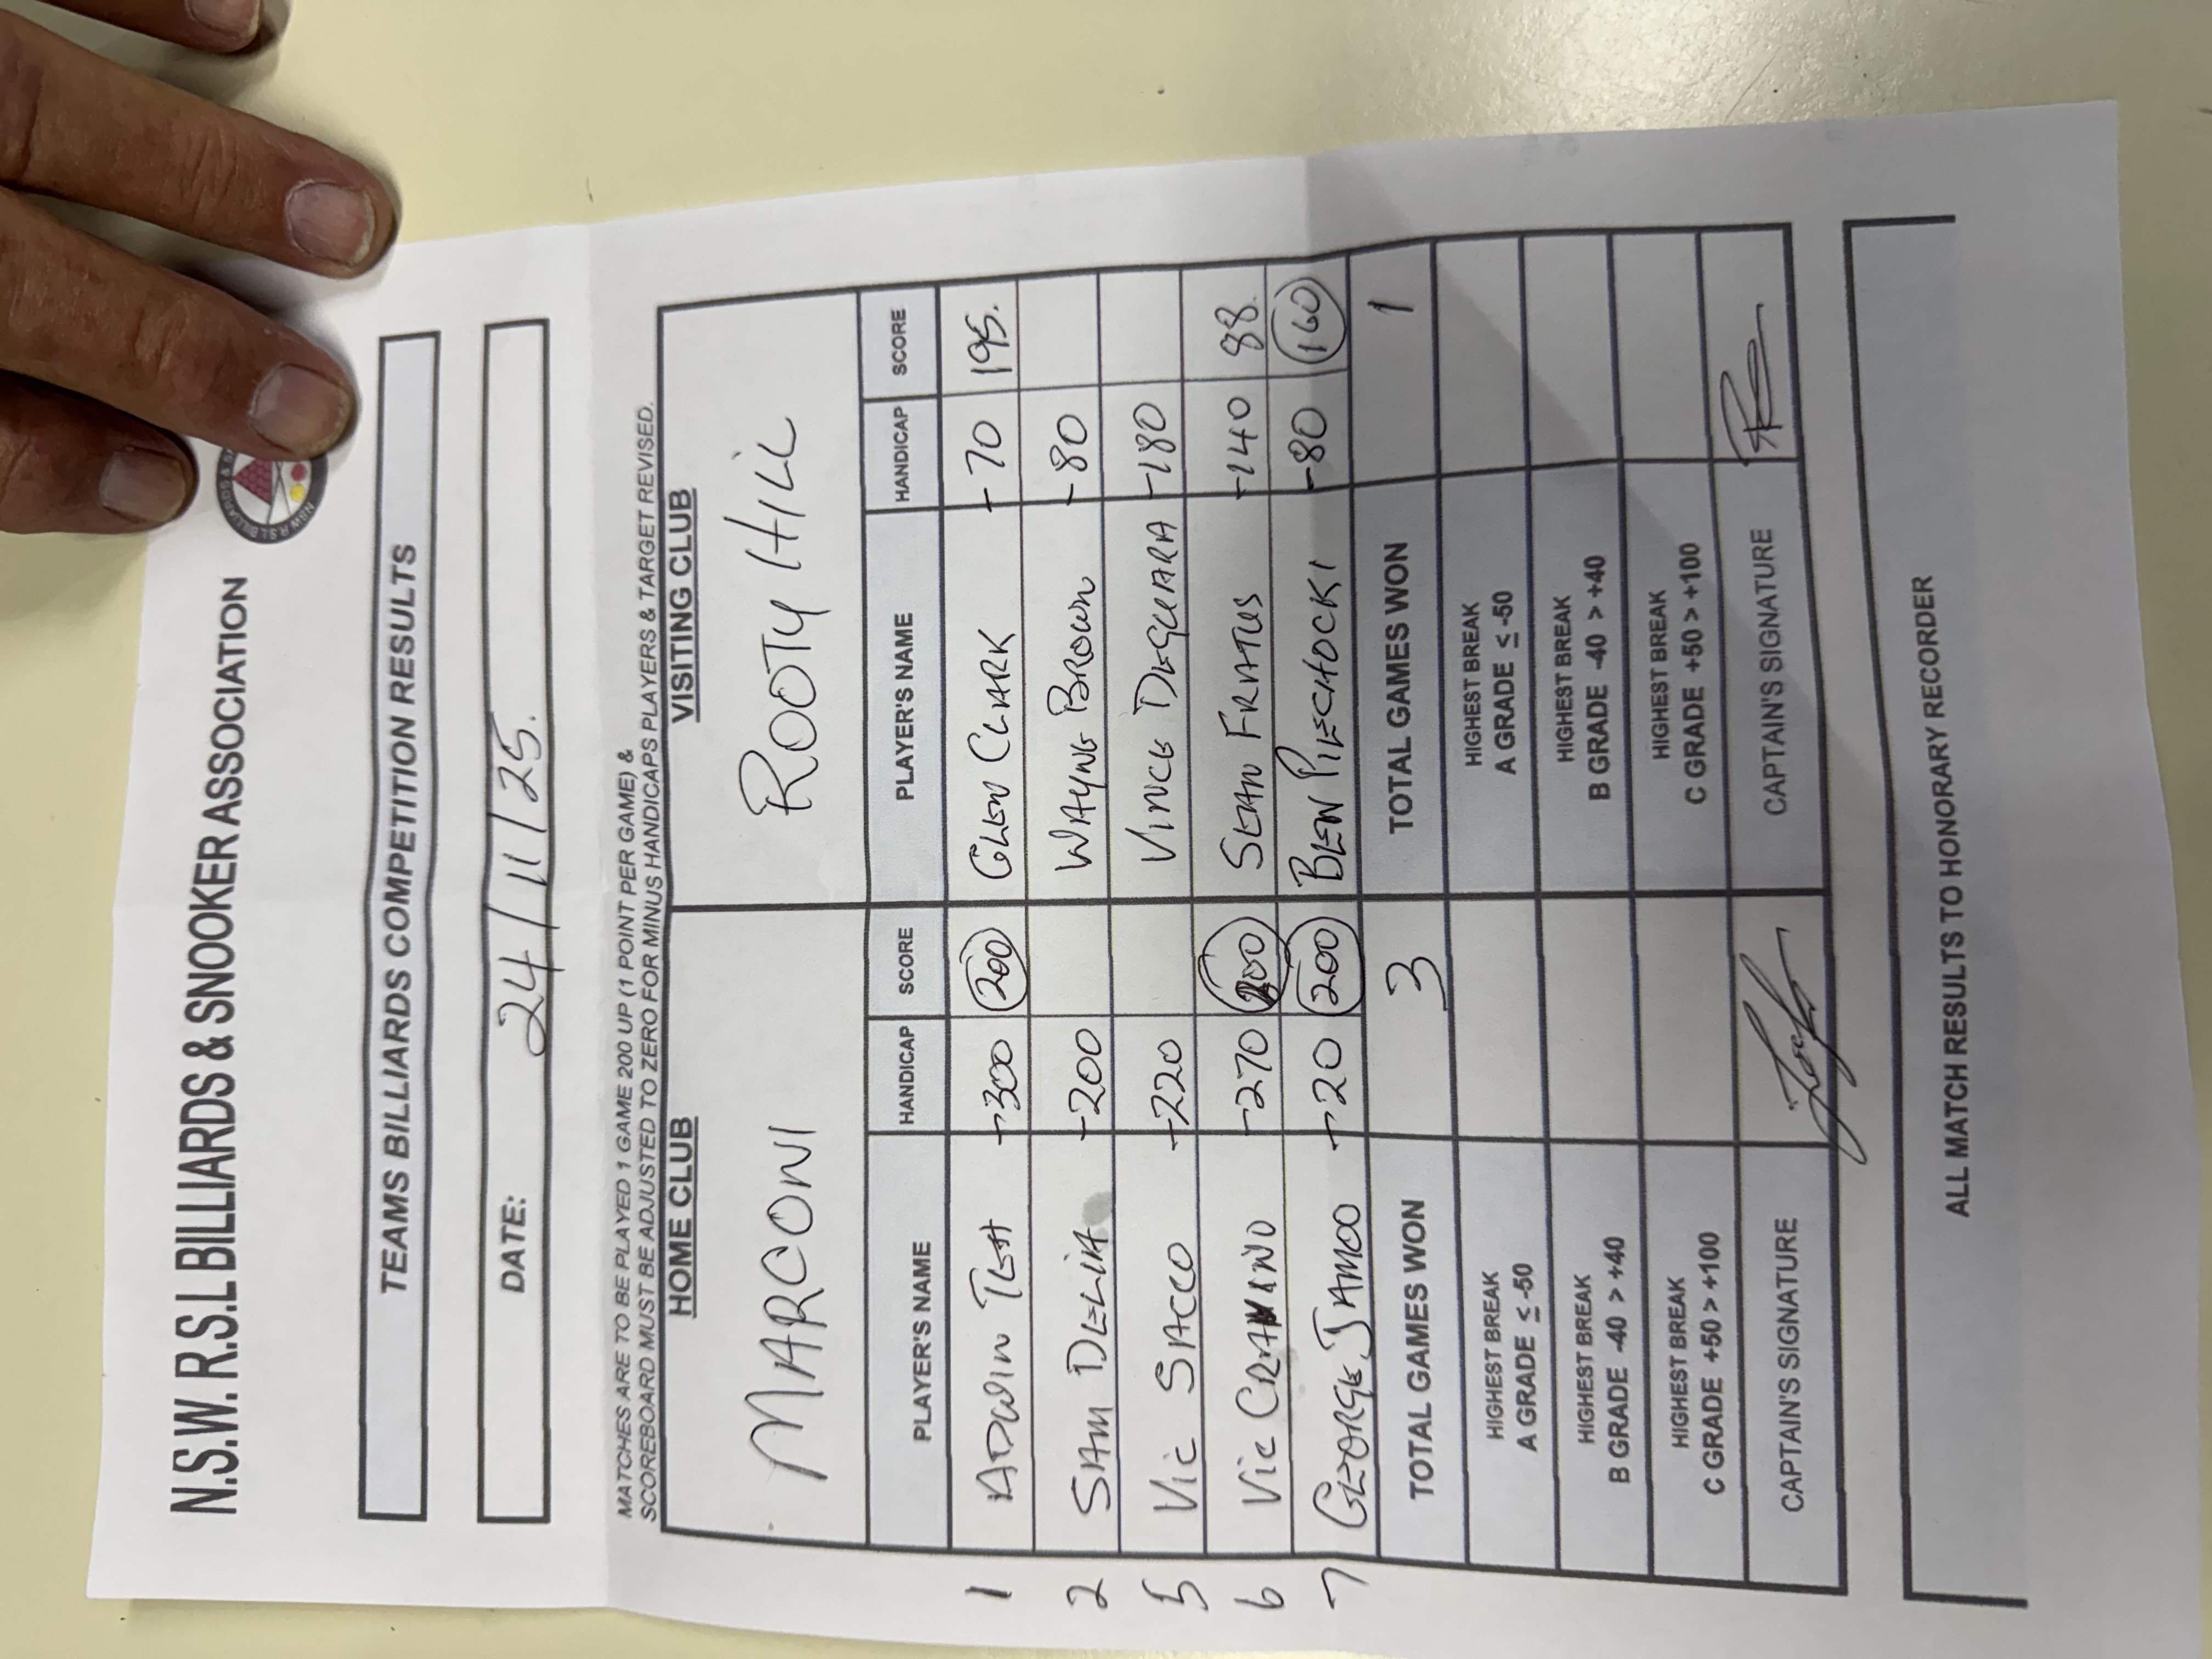 N.S.W. R.S.L BILLIARDS & SNOOKER ASSOCIATION
TEAMS BILLIARDS COMPETITION RESULTS
DATE: 24/11/25.
MATCHES ARE TO BE PLAYED 1 GAME 200 UP (1 POINT PER GAME) &
SCOREBOARD MUST BE ADJUSTED TO ZERO FOR MINUS HANDICAPS PLAYERS & TARGET REVISED.
HOME CLUB VISITING CLUB
MARCONI ROOTY HILL
PLAYER'S NAME HANDICAP SCORE PLAYER'S NAME HANDICAP SCORE
1 ADWIN TEH -300 200 GLEN CLARK -70 195.
2 SAM DELIA -200 WAYNE BROWN -80
5 VIC SACCO -220 VINCE DEGUARA -180
6 VIC CRANINO -270 200 SEAN FRATUS -140 88.
7 GEORGE JAMOO -20 200 BEN PIECHOCKI -80 160
TOTAL GAMES WON 3 TOTAL GAMES WON 1
HIGHEST BREAK HIGHEST BREAK
A GRADE ≤ -50 A GRADE ≤ -50
HIGHEST BREAK HIGHEST BREAK
B GRADE -40 > +40 B GRADE -40 > +40
HIGHEST BREAK HIGHEST BREAK
C GRADE +50 > +100 C GRADE +50 > +100
CAPTAIN'S SIGNATURE CAPTAIN'S SIGNATURE
ALL MATCH RESULTS TO HONORARY RECORDER